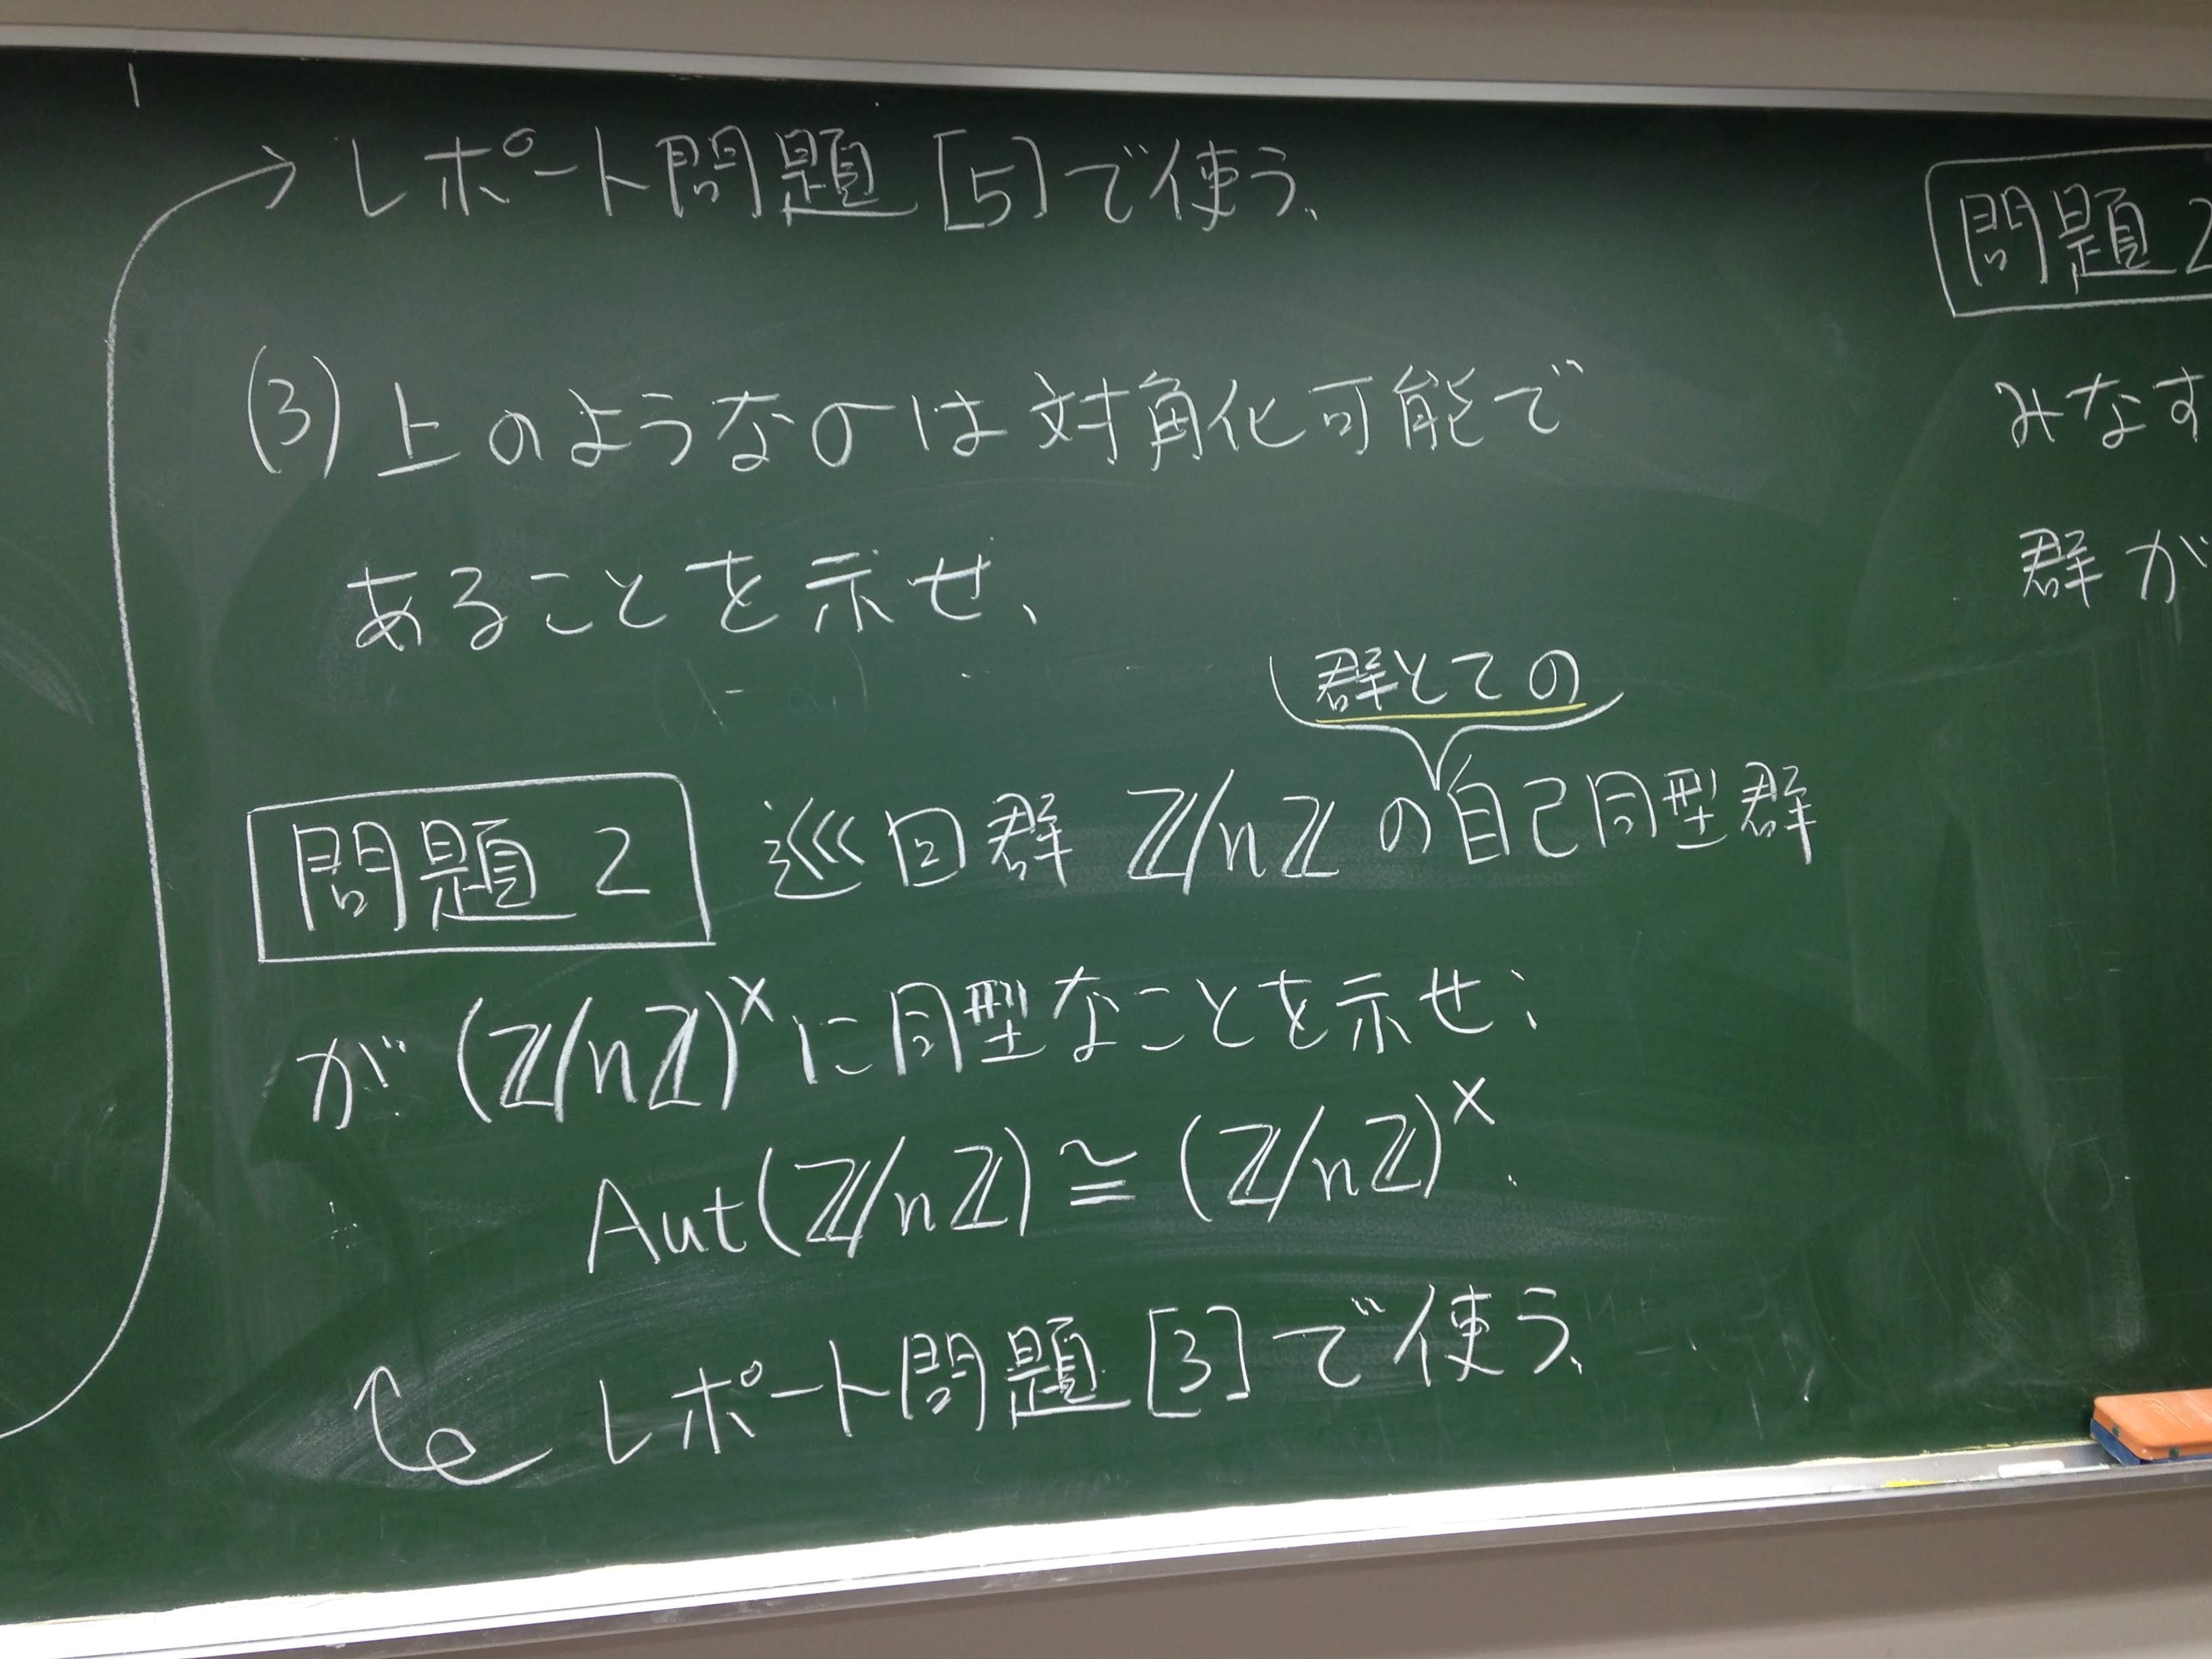 →レポート問題[5]で使う.
(3) 上のようなσは対角化可能で
あることを示せ、
群とての
問題2 巡回群 ℤ/nℤ の自己同型群
が (ℤ/nℤ)^× に同型なことを示せ:
Aut(ℤ/nℤ) ≅ (ℤ/nℤ)^×.
レポート問題[3]で使う、
問題2
みなす
群が